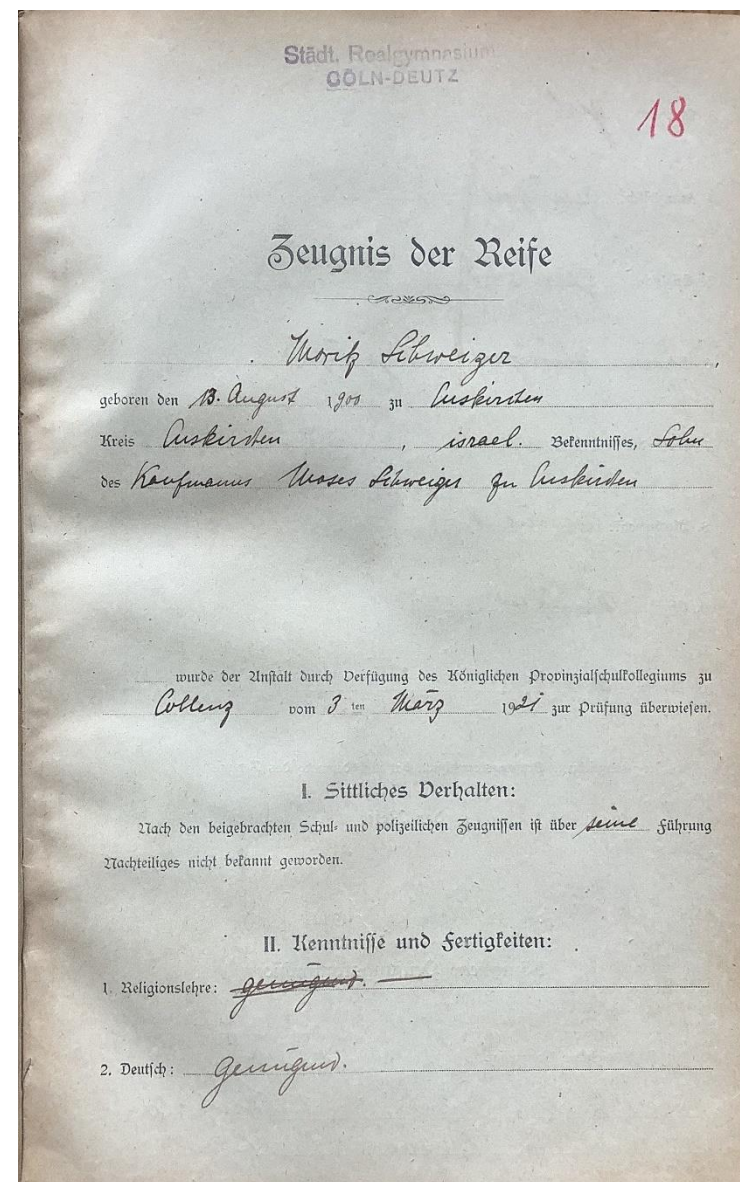 Städt. Realgymnasium
CÖLN-DEUTZ
18
Zeugnis der Reife
Moritz Schweiger,
geboren den 13. August 1900 zu Euskirchen
Kreis Euskirchen, israel. Bekenntnisses, Sohn
des Kaufmanns Moses Schweiger zu Euskirchen
wurde der Anstalt durch Verfügung des Königlichen Provinzialschulkollegiums zu
Coblenz vom 3 ten März 1921 zur Prüfung überwiesen.
I. Sittliches Verhalten:
Nach den beigebrachten Schul- und polizeilichen Zeugnissen ist über seine Führung
Nachteiliges nicht bekannt geworden.
II. Kenntnisse und Fertigkeiten:
1. Religionslehre: genügend. —
2. Deutsch: Genügend.